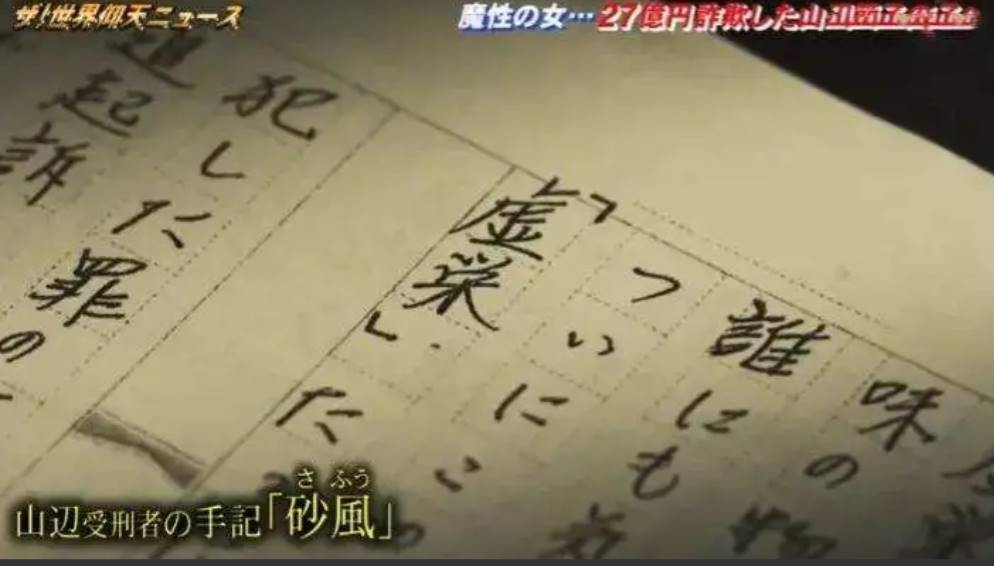 ザ!世界仰天ニュース
魔性の女…27億円詐欺した山辺
味の物
誰にも
ついにこ
「虚栄」た
犯した罪の
追起訴
さふう
山辺受刑者の手記「砂風」